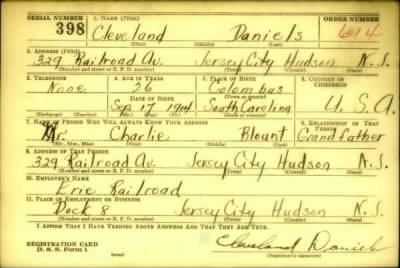 SERIAL NUMBER 1. NAME (Print) ORDER NUMBER
398 Cleveland Daniels 614
(First) (Middle) (Last)
2. ADDRESS (Print)
329 Railroad Av. Jersey City Hudson N.J.
(Number and street or R. F. D. number) (Town) (County) (State)
3. TELEPHONE 4. AGE IN YEARS 5. PLACE OF BIRTH 6. COUNTRY OF CITIZENSHIP
None 26 Colombas
DATE OF BIRTH (Town or county)
Sep. 17 1914 South Carolina U.S.A.
(Mo.) (Day) (Yr.) (State or country)
7. NAME OF PERSON WHO WILL ALWAYS KNOW YOUR ADDRESS 8. RELATIONSHIP OF THAT PERSON
Mr. Charlie Blount Grandfather
(Mr., Mrs., Miss) (First) (Middle) (Last)
9. ADDRESS OF THAT PERSON
329 Railroad Av. Jersey City Hudson N.J.
(Number and street or R. F. D. number) (Town) (County) (State)
10. EMPLOYER'S NAME
Erie Railroad
11. PLACE OF EMPLOYMENT OR BUSINESS
Dock 8 Jersey City Hudson N.J.
(Number and street or R. F. D. number) (Town) (County) (State)
I AFFIRM THAT I HAVE VERIFIED ABOVE ANSWERS AND THAT THEY ARE TRUE.
REGISTRATION CARD Cleveland Daniels
D. S. S. Form 1 (Registrant's signature)